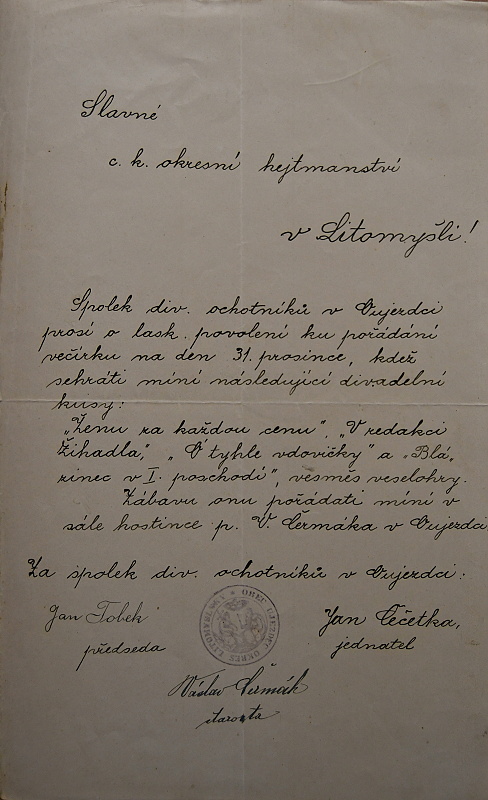 Slavné
c. k. okresní hejtmanství
v Litomyšli!
Spolek div. ochotníků v Oujezdci
prosí o lask. povolení ku pořádání
večírku na den 31. prosince, kdež
sehráti míní následující divadelní
kusy:
„Ženu za každou cenu", „V redakci
Žihadla", „O tyhle vdovičky" a „Bla-
zinec v I. poschodí", vesměs veselohry.
Zábavu onu pořádati míní v
sále hostince p. V. Čermáka v Oujezdci
Za spolek div. ochotníků v Oujezdci:
Jan Tobek
předseda
Jan Čečetka,
jednatel
OBEC OKRES
Václav Čermák
starosta